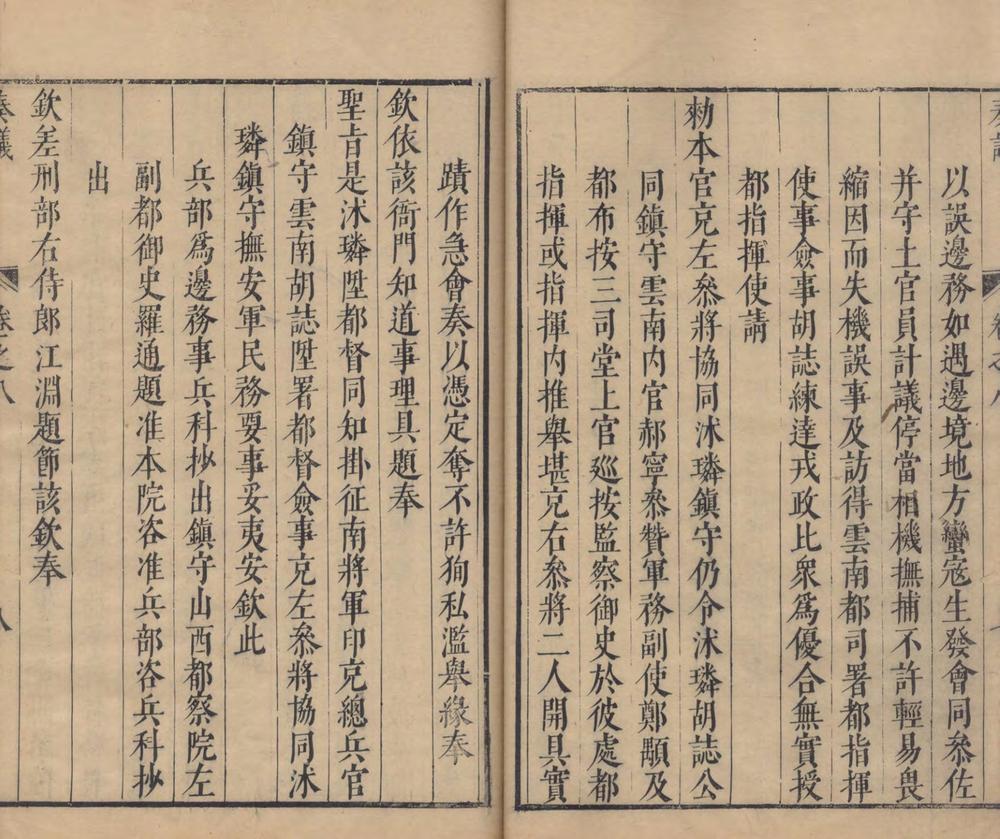 以誤邊務如遇邊境地方蠻寇生發會同叅佐
并守土官員計議停當相機撫捕不許輕易畏
縮因而失機誤事及訪得雲南都司署都指揮
使事僉事胡誌練達戎政比衆爲優合無實授
都指揮使請
勑本官充左叅將協同沐璘鎮守仍令沐璘胡誌公
同鎮守雲南内官郝寧叅贊軍務副使鄭顒及
都布按三司堂上官廵按監察御史於彼處都
指揮或指揮内推舉堪充右叅將二人開具實
蹟作急會奏以憑定奪不許狥私濫舉緣奉
欽依該衙門知道事理具題奉
聖旨是沐璘陞都督同知掛征南將軍印充總兵官
鎮守雲南胡誌陞署都督僉事充左叅將協同沐
璘鎮守撫安軍民務要事妥夷安欽此
兵部爲邊務事兵科抄出鎮守山西都察院左
副都御史羅通題准本院咨准兵部咨兵科抄
出
欽差刑部右侍郎江淵題節該欽奉
奏議
卷之八
八